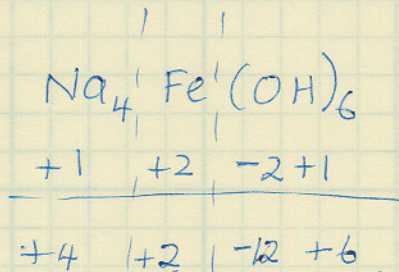 Na₄ Fe (OH)₆
+1 +2 -2 +1
+4 +2 -12 +6